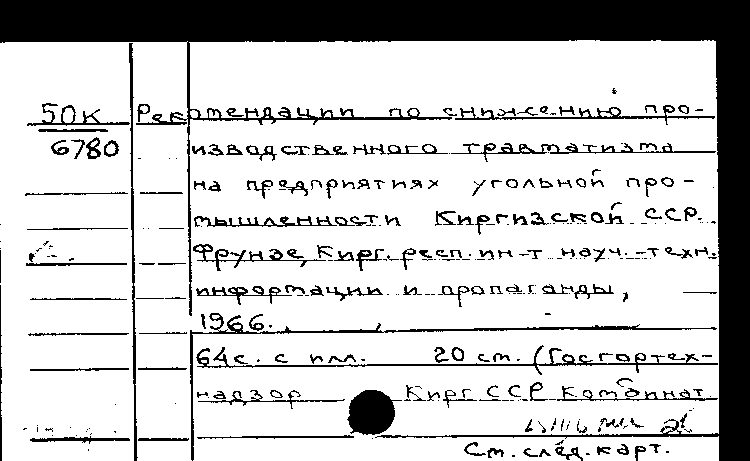 50К Рекомендации по снижению про-
6780 изводственного травматизма
на предприятиях угольной про-
мышленности Киргизской ССР.
Фрунзе, Кирг. респ. ин-т науч.-техн.
информации и пропаганды,
1966.
64с. с илл. 20 см. (Госгортех-
надзор Кирг ССР Комбинат
См. след. карт.